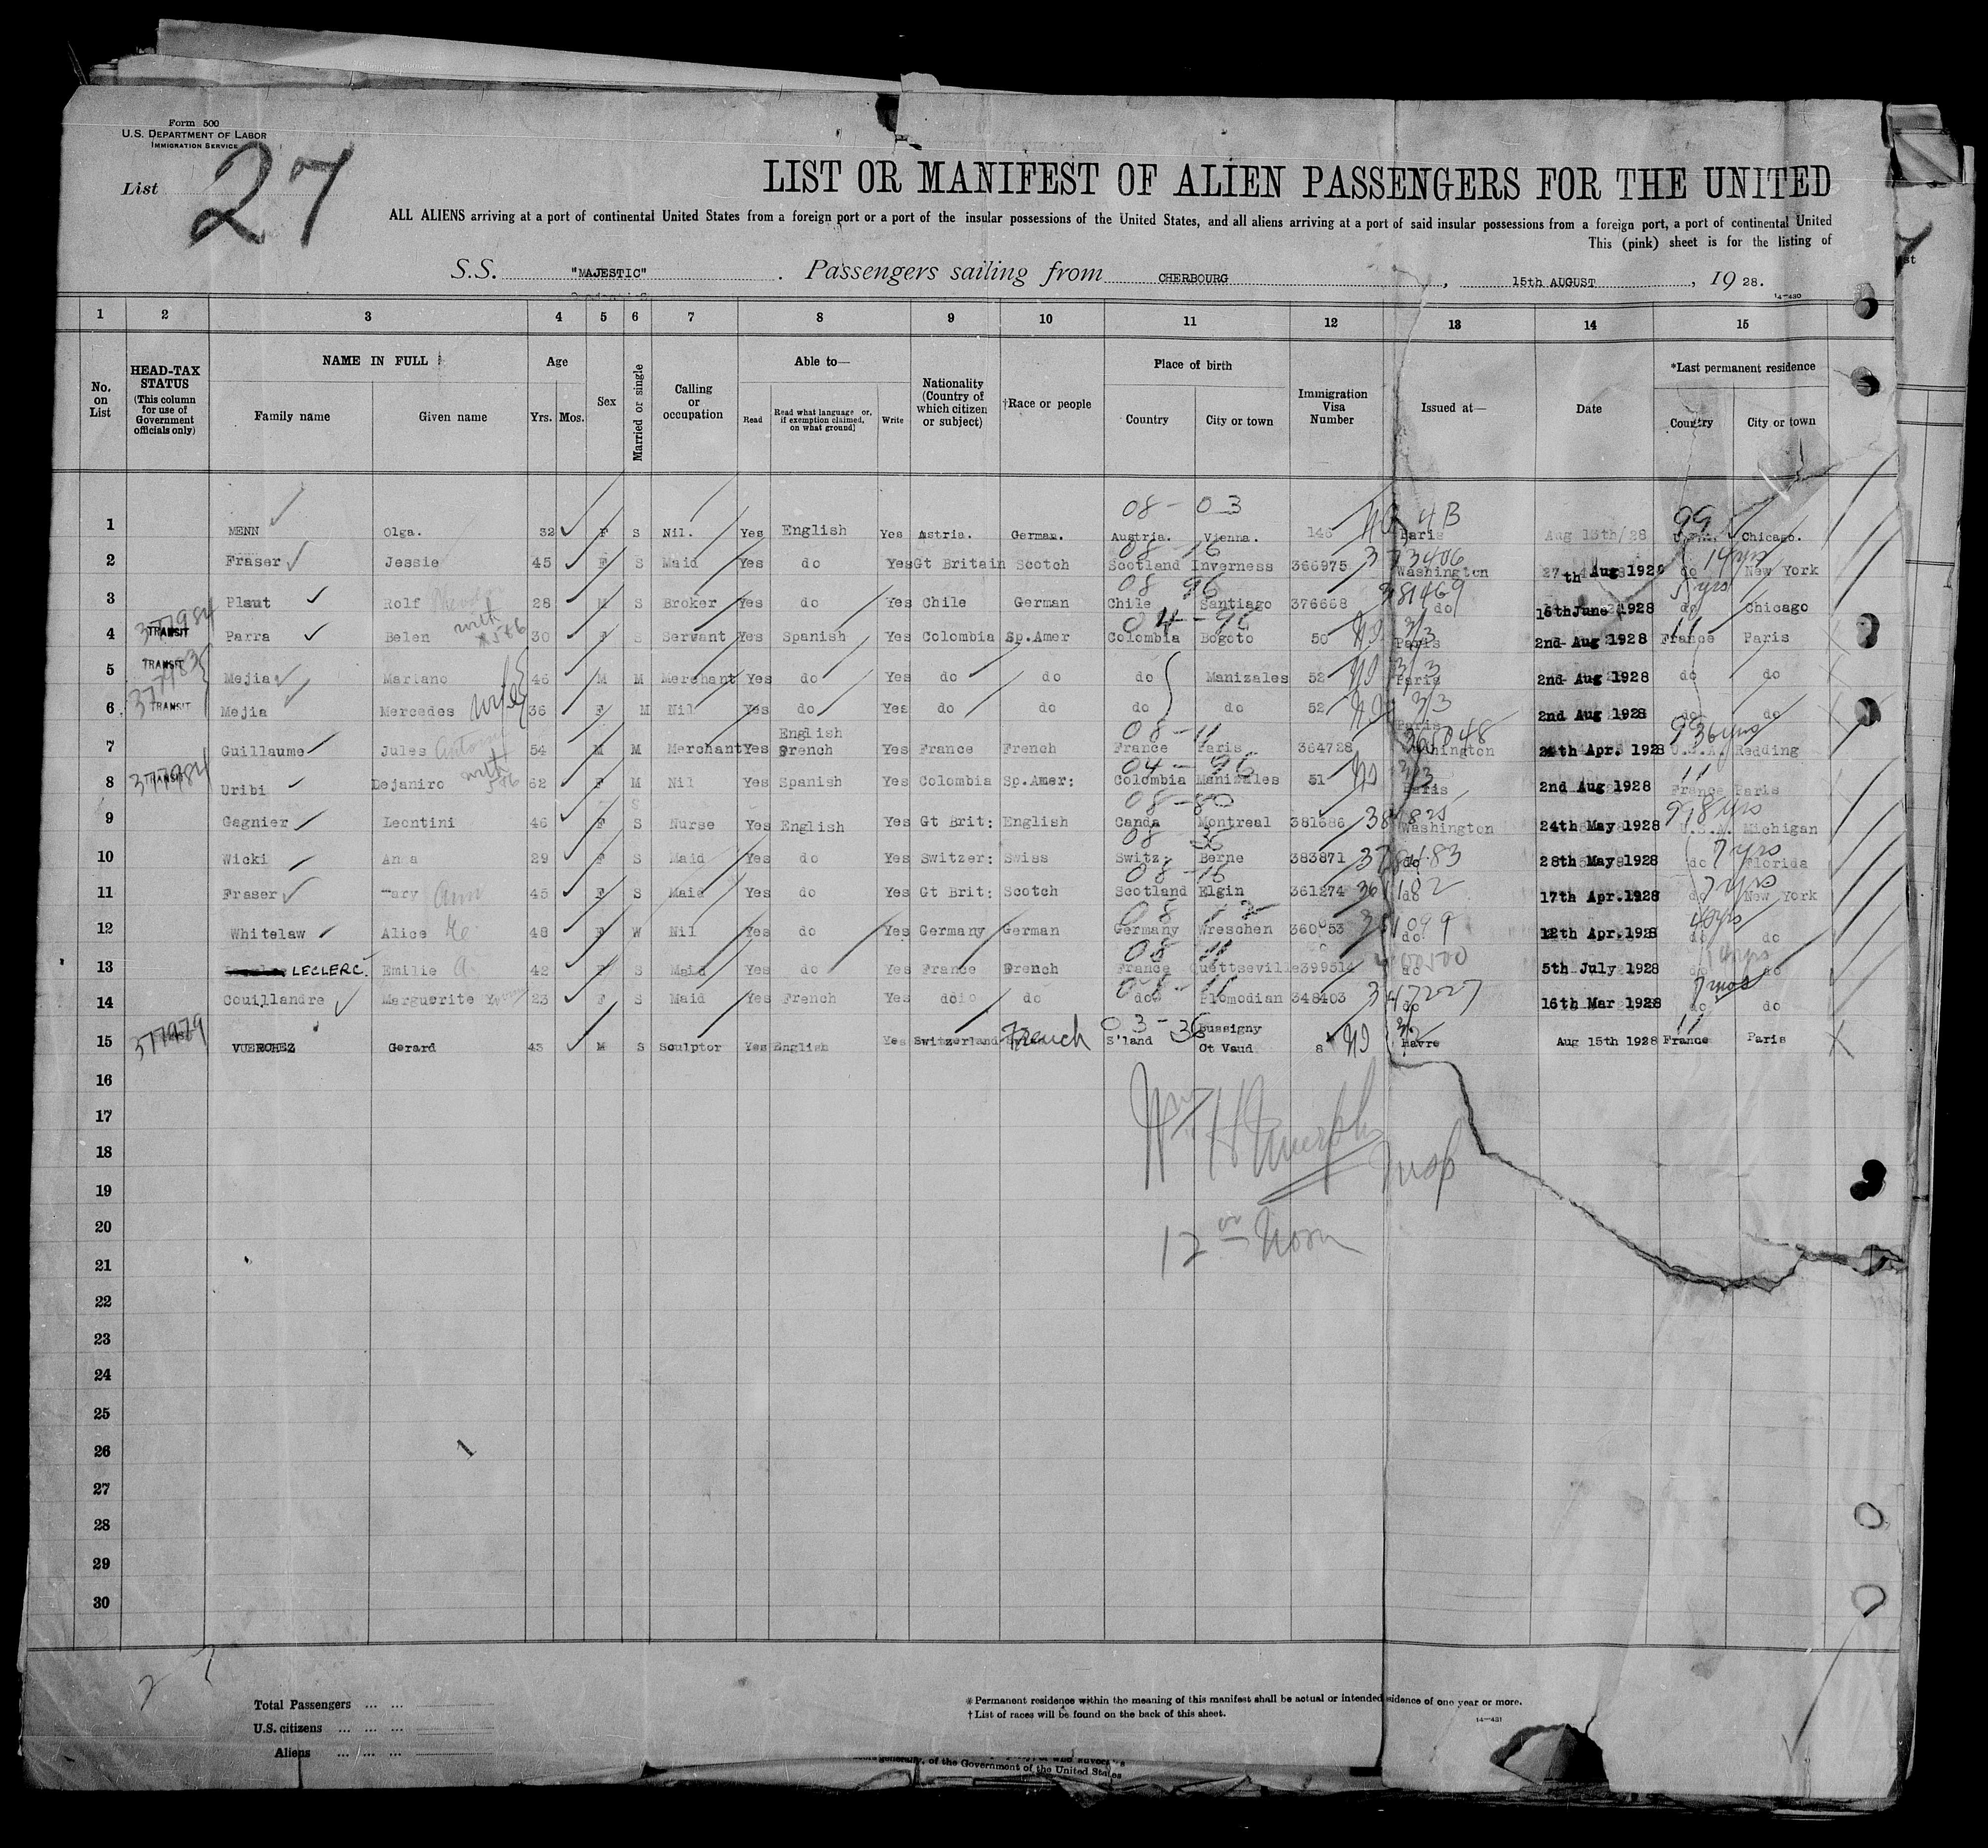 Form 500
U.S. DEPARTMENT OF LABOR
IMMIGRATION SERVICE
List 27
LIST OR MANIFEST OF ALIEN PASSENGERS FOR THE UNITED
ALL ALIENS arriving at a port of continental United States from a foreign port or a port of the insular possessions of the United States, and all aliens arriving at a port of said insular possessions from a foreign port, a port of continental United
This (pink) sheet is for the listing of
S.S. "MAJESTIC" . Passengers sailing from CHERBOURG , 15th AUGUST , 19 28.
14-430
1 2 3 4 5 6 7 8 9 10 11 12 13 14 15
No. on List
HEAD-TAX STATUS (This column for use of Government officials only)
NAME IN FULL
Family name Given name
Age
Yrs. Mos.
Sex
Married or single
Calling or occupation
Able to—
Read
Read what language or, if exemption claimed, on what ground]
Write
Nationality (Country of which citizen or subject)
†Race or people
Place of birth
Country City or town
Immigration Visa Number
Issued at—
Date
*Last permanent residence
Country City or town
08-03 4B 99
1 MENN Olga. 32 F S Nil. Yes English Yes Astria. German. Austria. Vienna. 146 Paris Aug 13th/28 Chicago.
08-16 373406 14yrs
2 Fraser Jessie 45 F S Maid Yes do Yes Gt Britain Scotch Scotland Inverness 366975 Washington 27th Aug 1928 do New York
08 96 381469 5 yrs
3 Plaut Rolf 28 M S Broker Yes do Yes Chile German Chile Santiago 376668 do 16th June 1928 do Chicago
377984 with 04-96 3/3 11
4 TRANSIT Parra Belen 30 F S Servant Yes Spanish Yes Colombia Sp.Amer Colombia Bogoto 50 Paris 2nd Aug 1928 France Paris
377983 3/3
5 TRANSIT Mejia Mariano 46 M M Merchant Yes do Yes do do do Manizales 52 Paris 2nd Aug 1928 do do
6 TRANSIT Mejia Mercedes wife 36 F M Nil Yes do Yes do do do do 52 3/3 Paris 2nd Aug 1928 do do
English 08-11 36yrs
7 Guillaume Jules 54 M M Merchant Yes French Yes France French France Paris 364728 Washington 24th Apr. 1928 U.S.A. Redding
377984 with 5&6 04-96 3/3 11
8 TRANSIT Uribi Dejaniro 62 F M Nil Yes Spanish Yes Colombia Sp.Amer: Colombia Manizales 51 Paris 2nd Aug 1928 France Paris
08-80 8 yrs
9 Gagnier Leontini 46 F S Nurse Yes English Yes Gt Brit: English Canda Montreal 381686 Washington 24th May 1928 U.S.A. Michigan
08 36 7 yrs
10 Wicki Anna 29 F S Maid Yes do Yes Switzer: Swiss Switz. Berne 383871 do 28th May 1928 do Florida
08-16 2 yrs
11 Fraser Mary Ann 45 F S Maid Yes do Yes Gt Brit: Scotch Scotland Elgin 361274 do 17th Apr.1928 do New York
08 12 40yrs
12 Whitelaw Alice 48 F W Nil Yes do Yes Germany German Germany Wreschen 360053 do 12th Apr.1928 do do
08 11 14yrs
13 LECLERC. Emilie A. 42 F S Maid Yes do Yes France French France Quettseville 399514 do 5th July 1928 do do
08-11 347227 7mos
14 Couillandre Marguerite 23 F S Maid Yes French Yes do do do Plomodian 348403 do 16th Mar 1928 do do
377979 03-36 11
15 VUERCHEZ Gerard 43 M S Sculptor Yes English Yes Switzerland French S'land Bussigny Ct Vaud 8 Havre Aug 15th 1928 France Paris
16
17 Wm H Murphy
18 Insp
19
20 12 Noon
21
22
23
24
25
26
27
28
29
30
27
Total Passengers ... ...
U.S. citizens ... ... ...
Aliens ... ... ...
*Permanent residence within the meaning of this manifest shall be actual or intended residence of one year or more.
†List of races will be found on the back of this sheet.
14-431
generally, of the Government of the United States